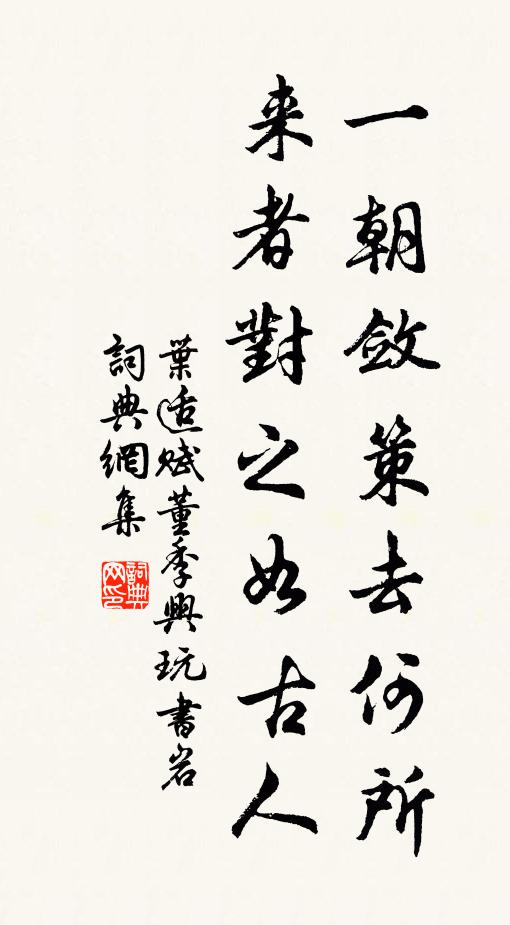 一朝斂策去何所
来者對之如古人
葉适賦董季興玩書岩
詞典網集
詞典网印